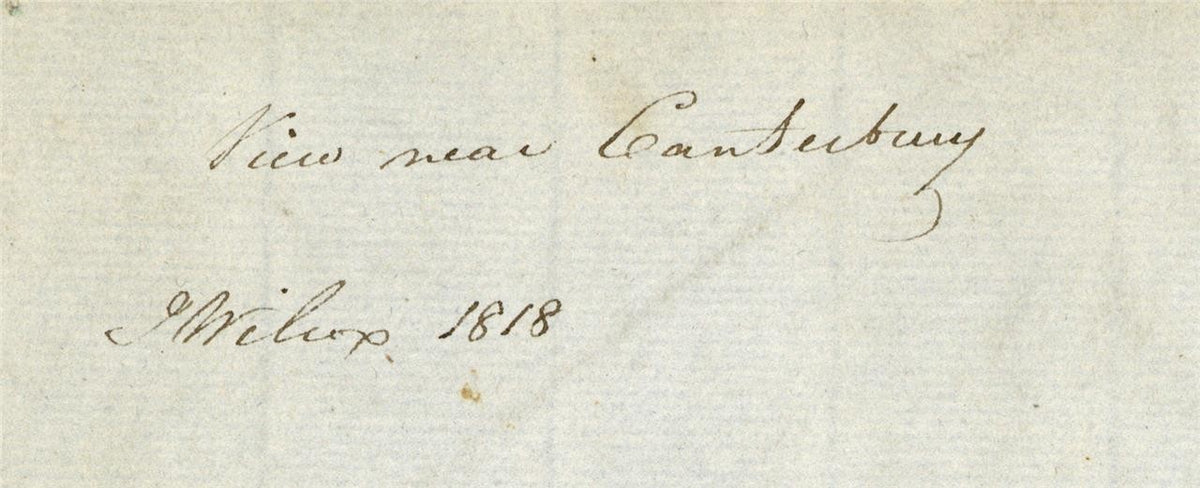 View near Canterbury
J Wilcox 1818